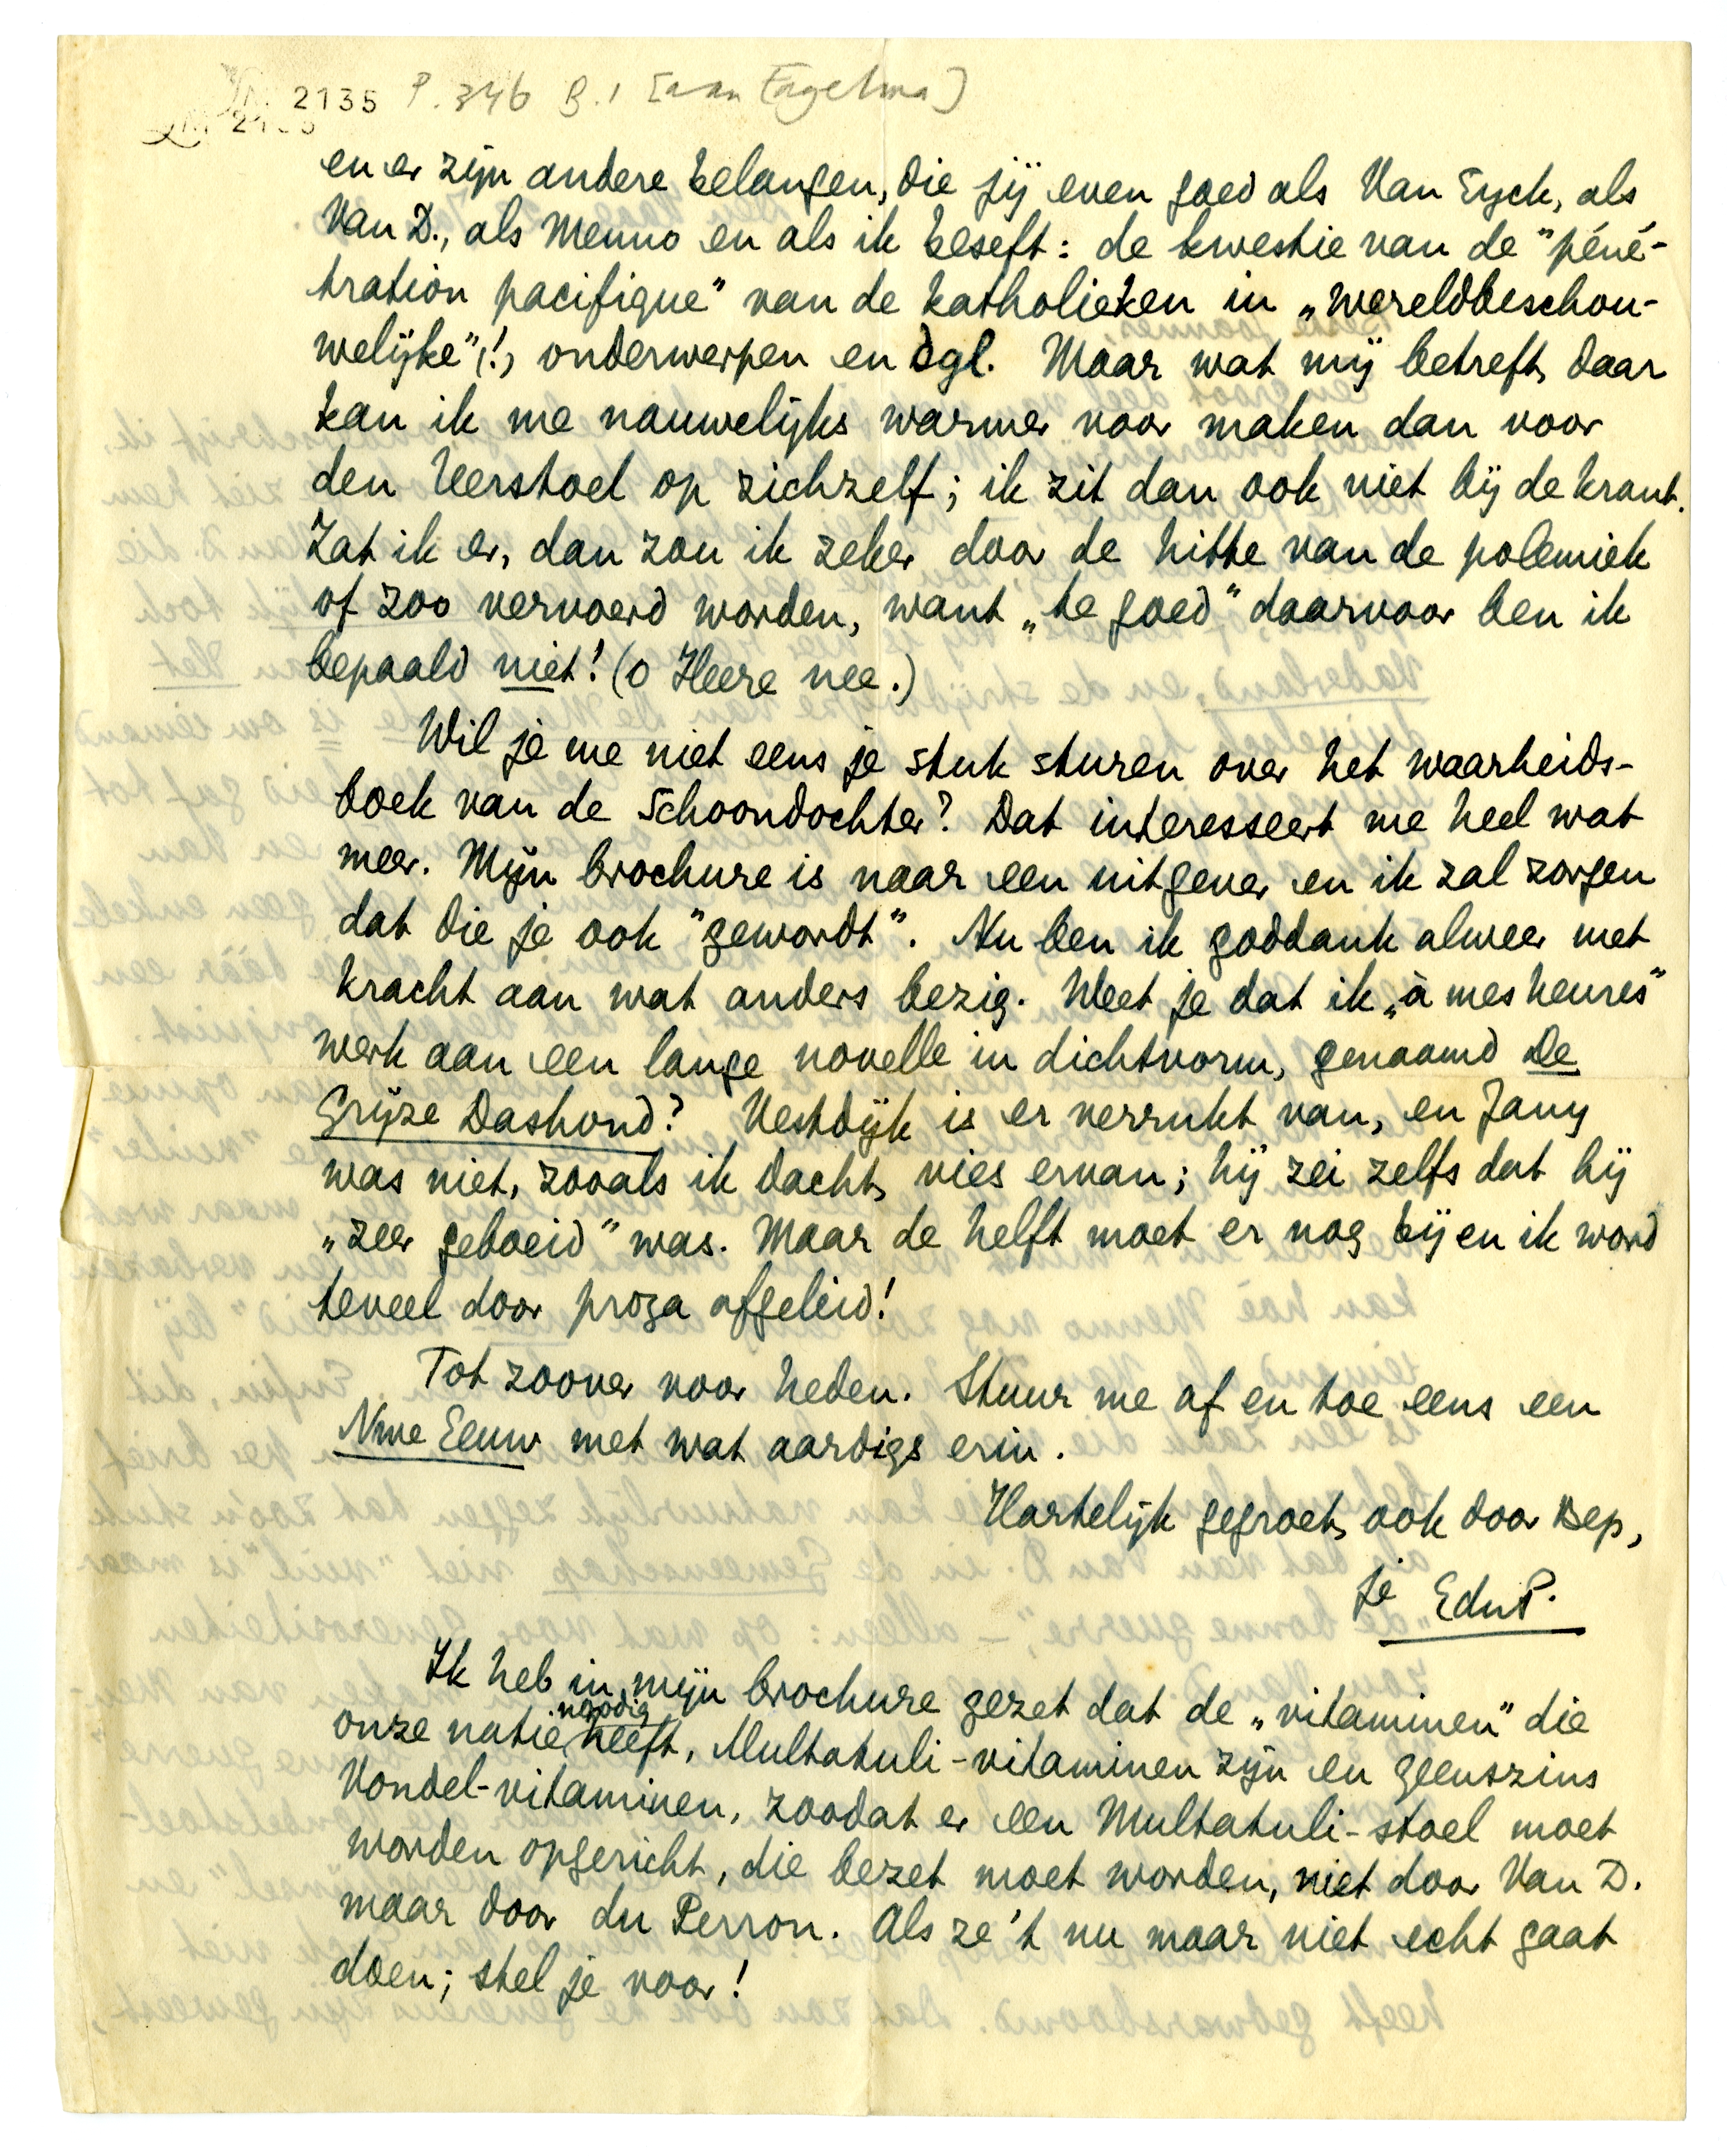 2135 P. 346 B. 1 [aan Engelman]
en er zijn andere belangen, die jij even goed als Van Eyck, als
Van D., als Menno en als ik beseft: de kwestie van de "péné-
tration pacifique" van de katholieken in „wereldbeschou-
welijke"(!) onderwerpen en dgl. Maar wat mij betreft, daar
kan ik me nauwelijks warmer voor maken dan voor
den leerstoel op zichzelf; ik zit dan ook niet bij de krant.
Zat ik er, dan zou ik zeker door de hitte van de polemiek
of zoo vervoerd worden, want „te goed" daarvoor ben ik
bepaald niet! (o Heere nee.)
Wil je me niet eens je stuk sturen over het waarheids-
boek van de Schoondochter? Dat interesseert me heel wat
meer. Mijn brochure is naar een uitgever en ik zal zorgen
dat die je ook "gewordt". Nu ben ik goddank alweer met
kracht aan wat anders bezig. Weet je dat ik „à mes heures"
werk aan een lange novelle in dichtvorm, genaamd De
Grijze Dashond? Vestdijk is er verrukt van, en Jany
was niet, zooals ik dacht, vies ervan; hij zei zelfs dat hij
„zeer geboeid" was. Maar de helft moet er nog bij en ik word
teveel door proza afgeleid!
Tot zoover voor heden. Stuur me af en toe eens een
Nwe Eeuw met wat aardigs erin.
Hartelijk gegroet, ook door Bep,
je EduP.
Ik heb in mijn brochure gezet dat de „vitaminen" die
onze natie noodig heeft, Multatuli-vitaminen zijn en geenszins
Vondel-vitaminen, zoodat er een Multatuli-stoel moet
worden opgericht, die bezet moet worden, niet door Van D.
maar door du Perron. Als ze 't nu maar niet echt gaat
doen; stel je voor!